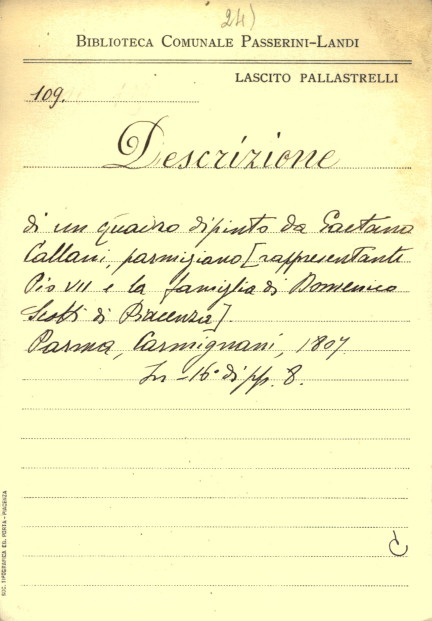 24)
BIBLIOTECA COMUNALE PASSERINI-LANDI
LASCITO PALLASTRELLI
109.
Descrizione
di un quadro dipinto da Gaetano
Callani, parmigiano [rappresentante
Pio VII e la famiglia di Domenico
Scotti di Piacenza].
Parma, Carmignani, 1807
In-16° di pp. 8.
SOC. TIPOGRAFICA ED. PORTA - PIACENZA